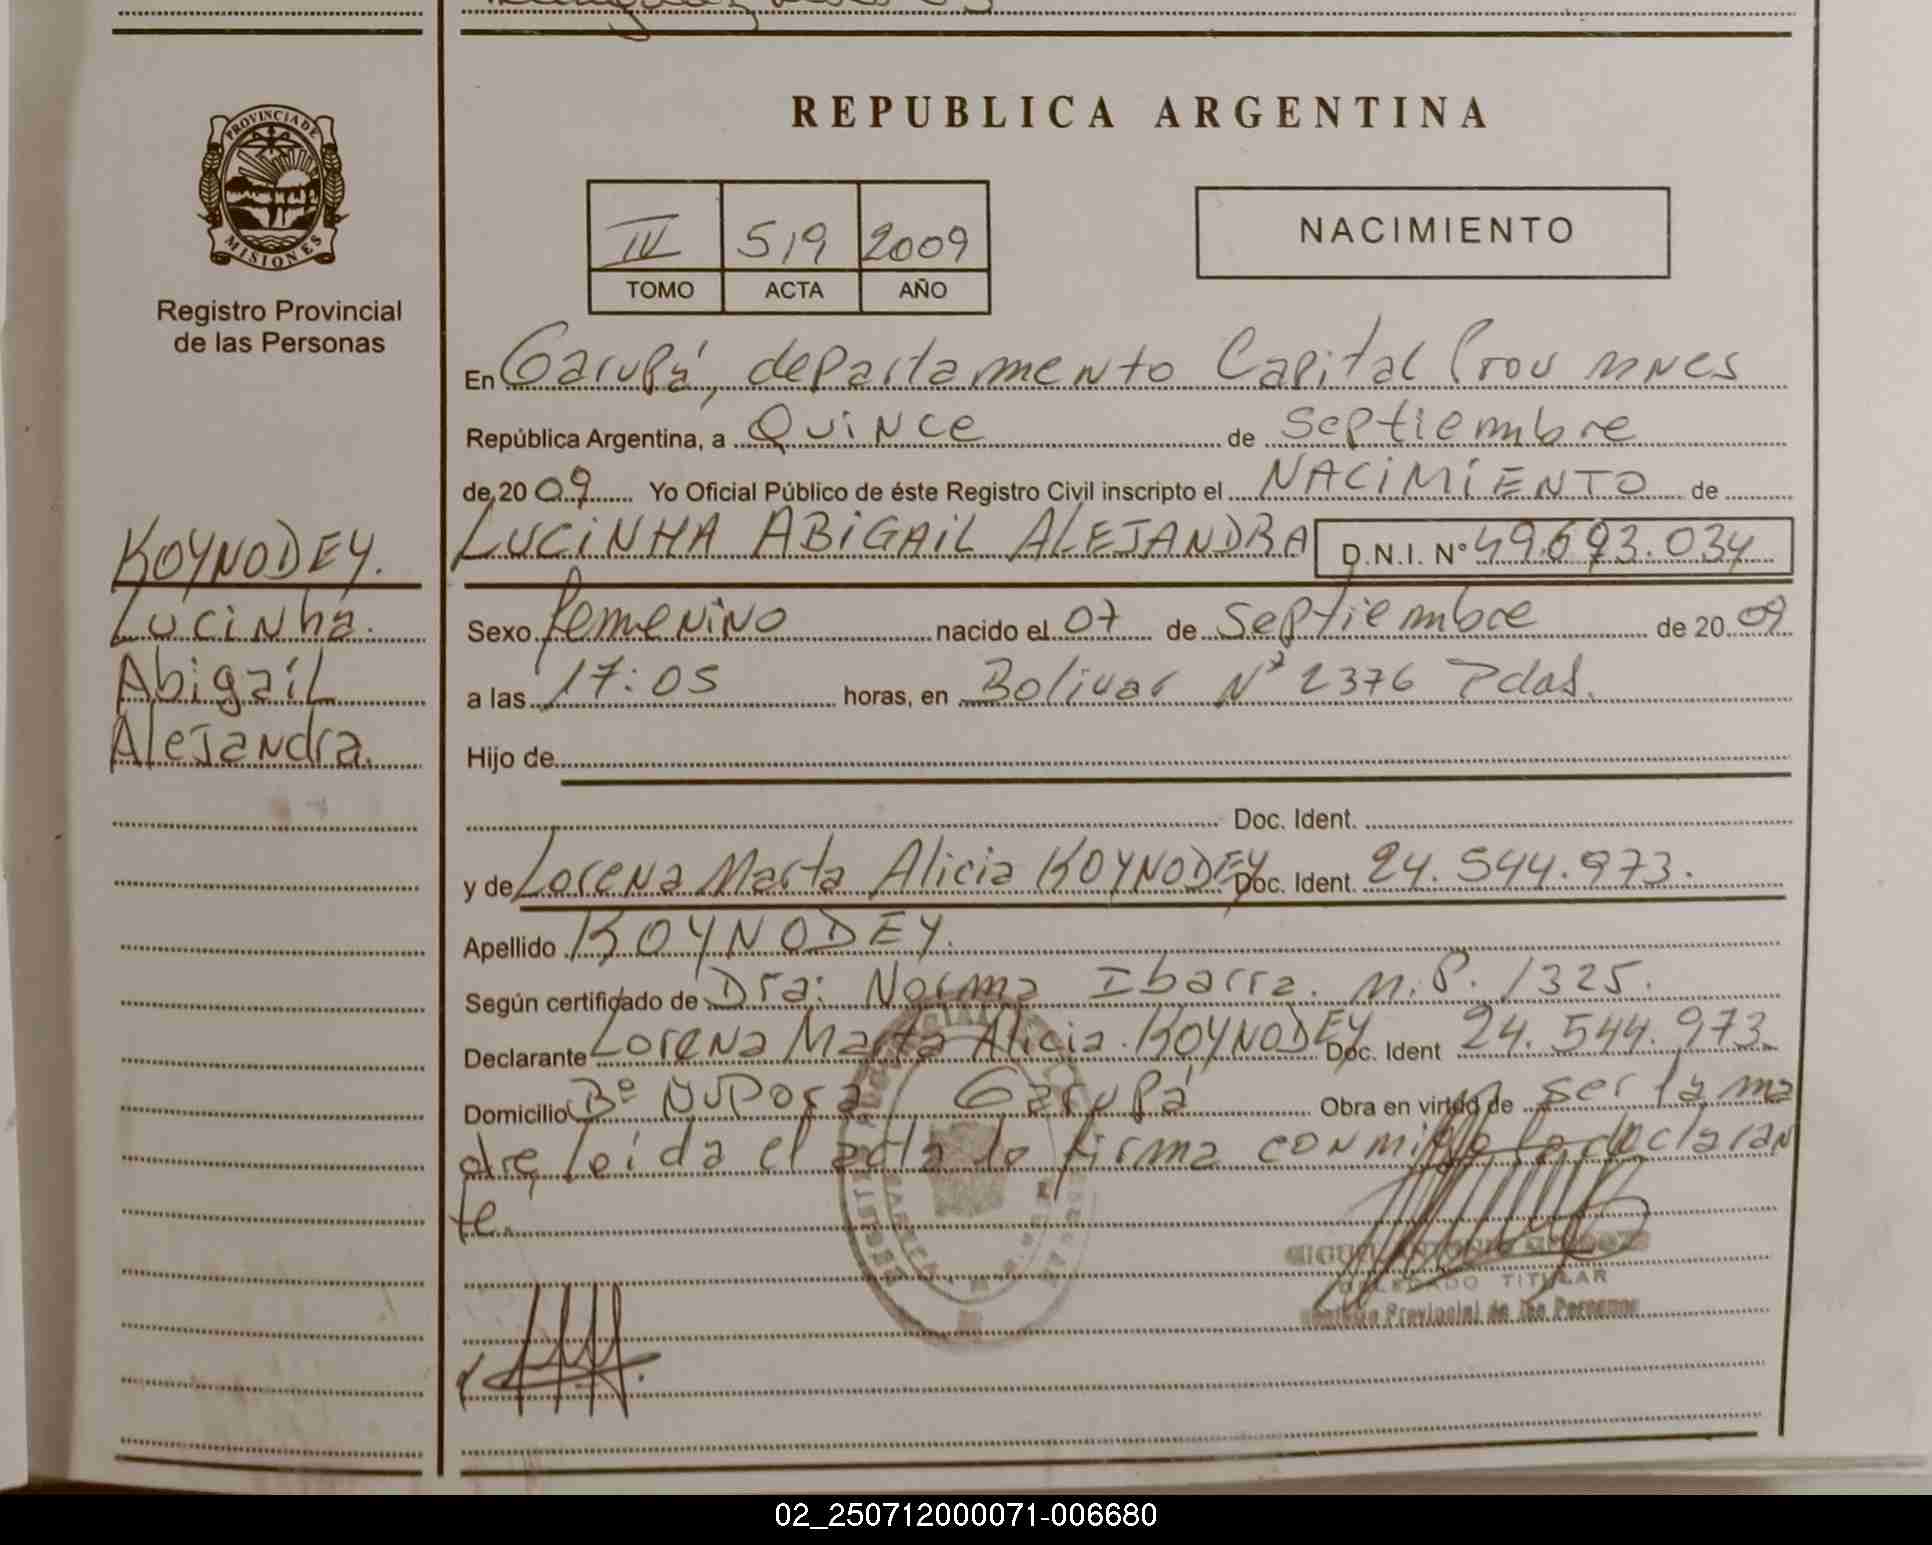 REPUBLICA ARGENTINA
PROVINCIA DE
MISIONES
Registro Provincial
de las Personas
519 2009
TOMO ACTA AÑO
NACIMIENTO
En Garupá, departamento Capital Prov mnes
República Argentina, a Quince de Septiembre
de 2009 Yo Oficial Público de éste Registro Civil inscripto el NACIMIENTO de
LUCINHA ABIGAIL ALEJANDRA D.N.I. N° 49.693.034
KOYNODEY.
Lucinha.
Abigaíl
Alejandra.
Sexo femenino nacido el 07 de Septiembre de 2009
a las 17:05 horas, en Bolivar N° 2376 Pdas.
Hijo de
Doc. Ident.
y de Lorena Marta Alicia KOYNODEY Doc. Ident. 24.544.973.
Apellido KOYNODEY.
Según certificado de Dra: Norma Ibarra. M.P. 1325.
Declarante Lorena Marta Alicia KOYNODEY Doc. Ident 24.544.973.
Domicilio B° Garupá Obra en virtud de ser la ma
dre, leida el acta lo firma conmigo la declaran
te.
DELEGADO TITULAR
Registro Provincial de las Personas
02_250712000071-006680